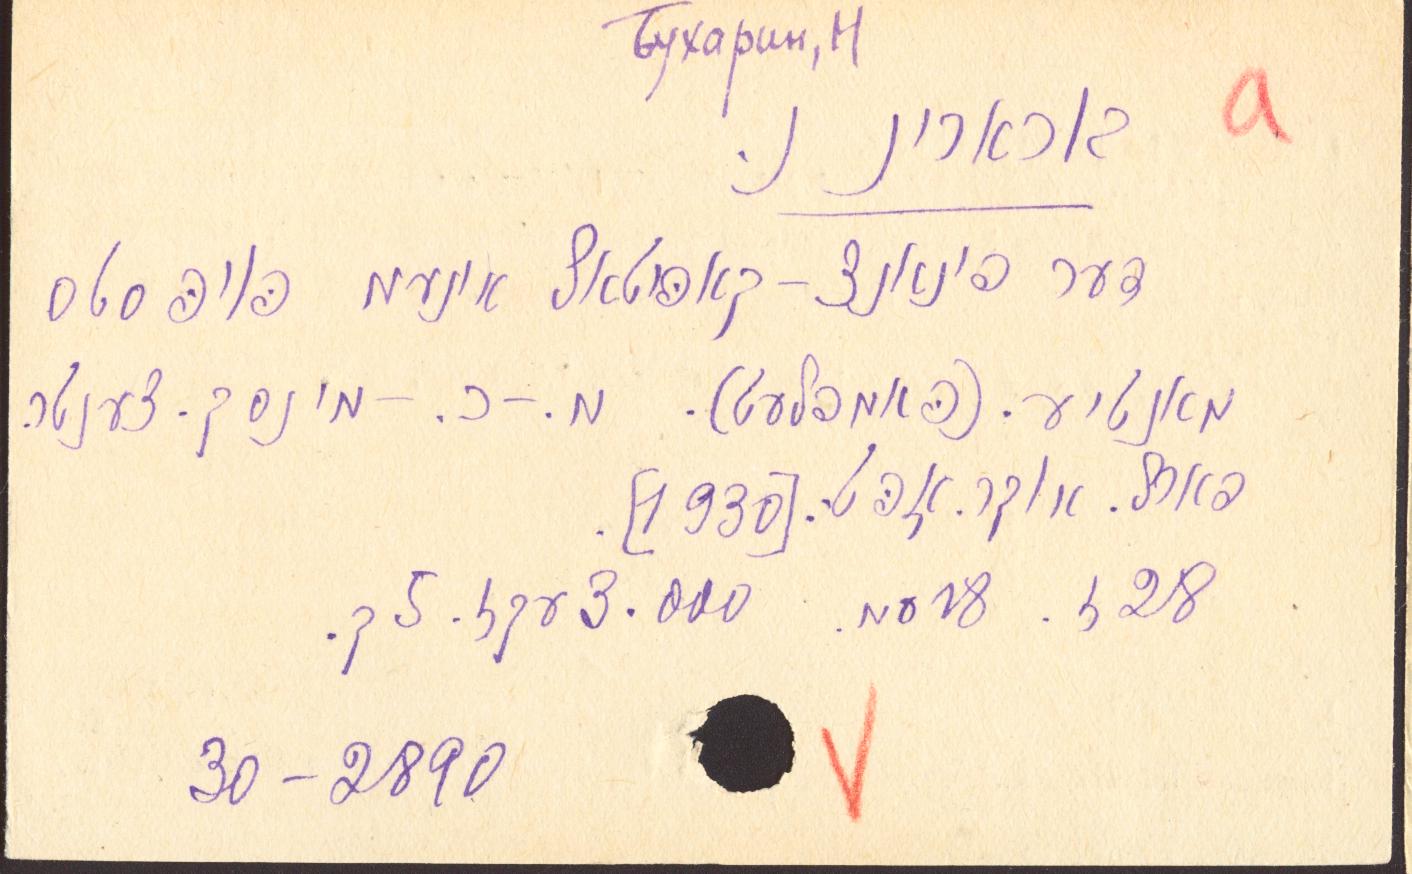 Бухарин, Н
a
בוכארין נ.
דער פינאנצ-קאפיטאל אינעם פויפסטס
מאנטיע. (פאמפלעט). מ.-כ.-מינסק. צענטר.
פארל. אוקר. אפט. [1930].
28 ז. 18 סמ. 000. צעקז. 5 ק.
30-2890